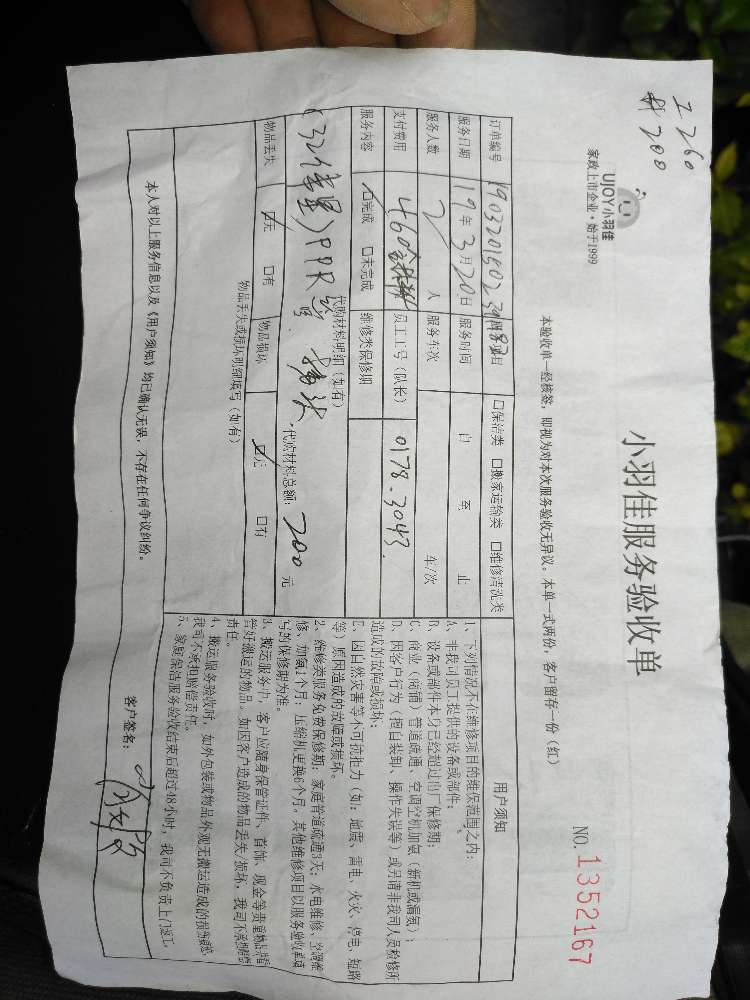 工 260
材 200
UJOY小羽佳
家政上市企业·始于1999
小羽佳服务验收单
NO. 1352167
本验收单一经核签，即视为对本次服务验收无异议。本单一式两份，客户留存一份（红）
订单编号 服务项目 □保洁类 □搬家运输类 □维修清洗类
服务日期 19年3月20日 服务时间 自 至 止
服务人数 2 人 服务车次 车/次
支付费用 460 员工工号（队长） 0178.3043
服务内容 ☑完成 □未完成 维修类保修期
代购材料明细（如有）
PPR 代购材料总额：200 元
物品丢失 ☑无 □有 物品损坏 ☑无 □有
物品丢失或损坏明细填写（如有）
用户须知
1、下列情况不在维修项目的维保范围之内：
A、非我司员工提供的设备或部件；
B、设备或部件本身已经超过出厂保修期；
C、商业（商铺）管道疏通、空调空机加氨（新机或漏氨）；
D、因客户行为（擅自装卸、操作失误等）或另请非我司人员检修所
造成的故障或损坏；
E、因自然灾害等不可抗拒力（如：地震、雷电、火灾、停电、短路
等）原因造成的故障或损坏。
2、维修类服务免费保修期：家庭管道疏通3天；水电维修、空调维
修、加氨1个月；压缩机更换6个月。其他维修项目以服务验收单填
写的保修期为准。
3、搬运服务中，客户应随身保管证件、首饰、现金等贵重物品
管好搬运的物品。如因客户造成的物品丢失/损坏，我司不承担赔偿
责任。
4、搬运服务验收时，如外包装或物品外观无搬运造成的损
我司不承担赔偿责任。
5、家庭保洁服务验收结束后超过48小时，我司不负责上门返工。
本人对以上服务信息以及《用户须知》均已确认无误，不存在任何争议纠纷。 客户签名：